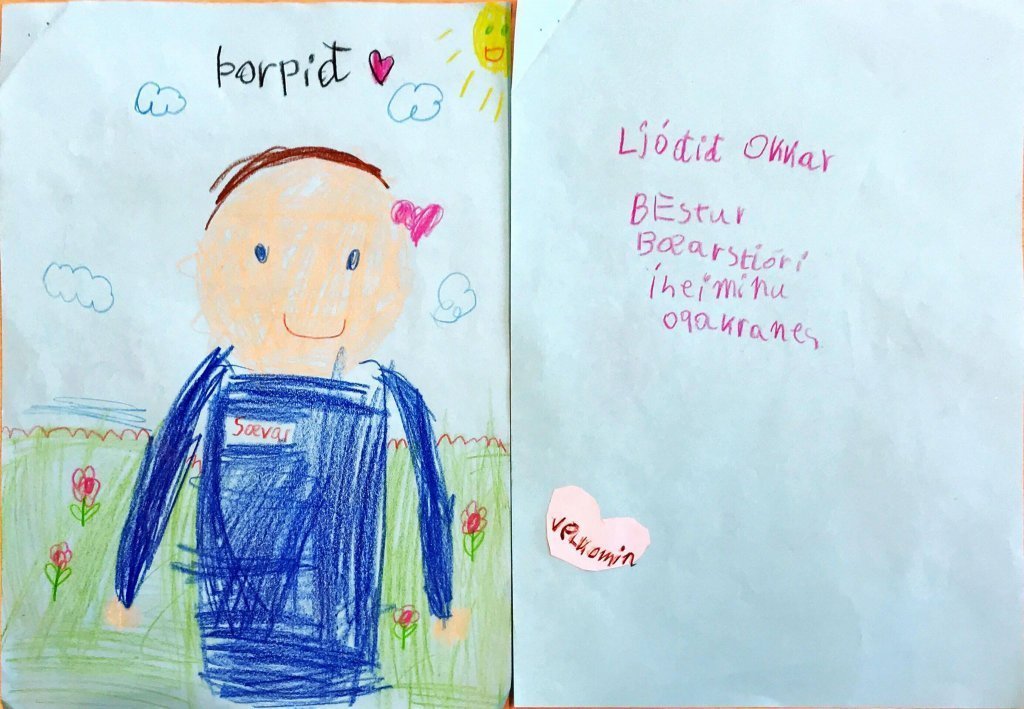 Þorpið
Sævar
Ljóðið OKKar
BEstur
Bæarstióri
íheiminu
ogakranes
veLkomin